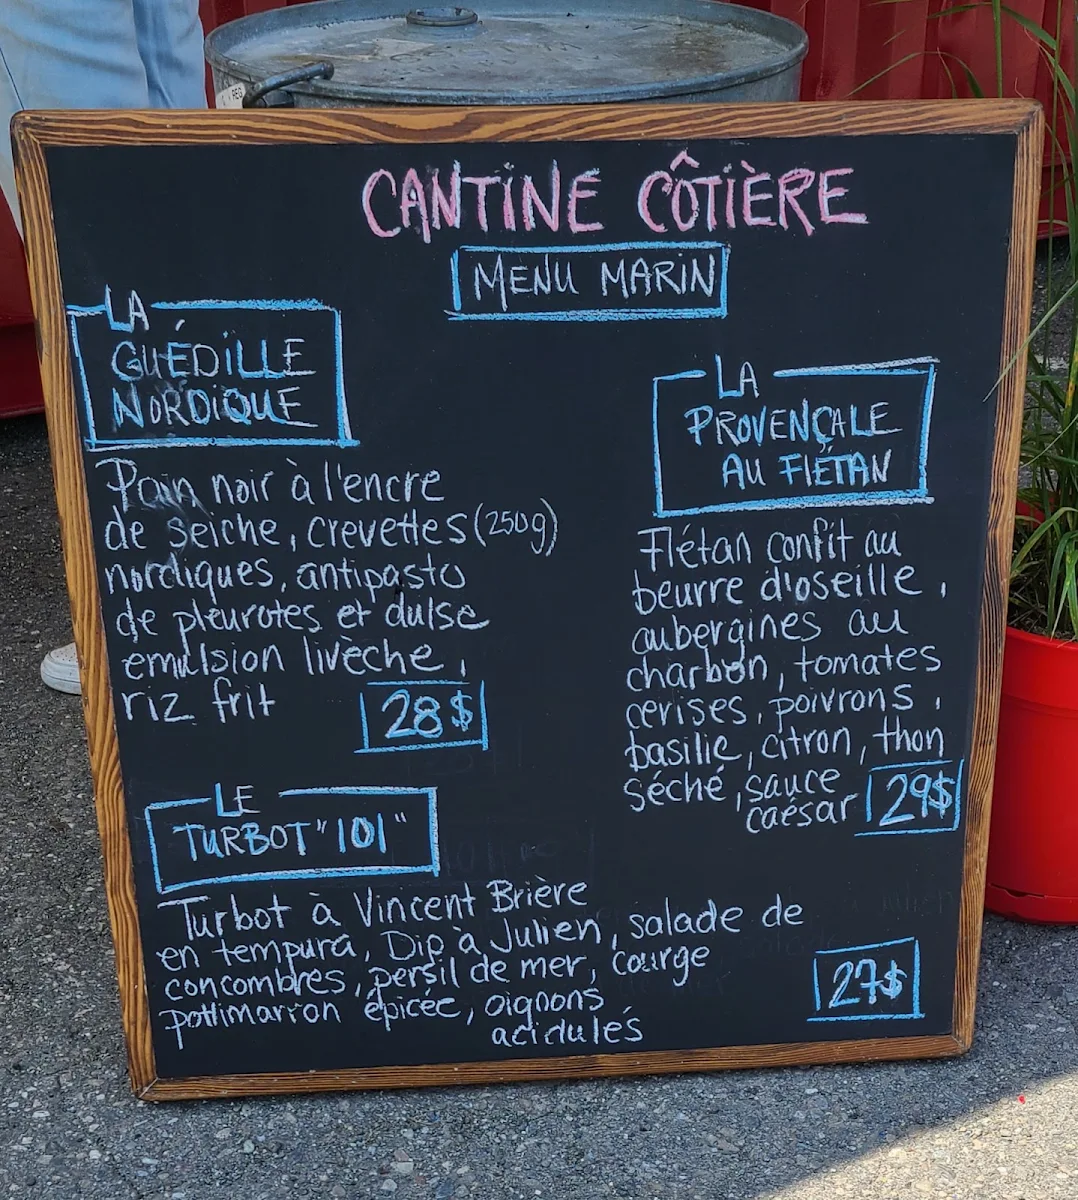 CANTINE CÔTIÈRE
MENU MARIN
LA
GUÉDILLE
NORDIQUE
Pain noir à l'encre
de seiche, crevettes (250g)
nordiques, antipasto
de pleurotes et dulse
emulsion livèche,
riz frit
28$
LA
PROVENÇALE
AU FLÉTAN
Flétan confit au
beurre d'oseille,
aubergines au
charbon, tomates
cerises, poivrons,
basilic, citron, thon
séché, sauce
caésar
29$
LE
TURBOT "101"
Turbot à Vincent Brière
en tempura, Dip à Julien, salade de
concombres, persil de mer, courge
pottimarron épicée, oignons
acidulés
27$